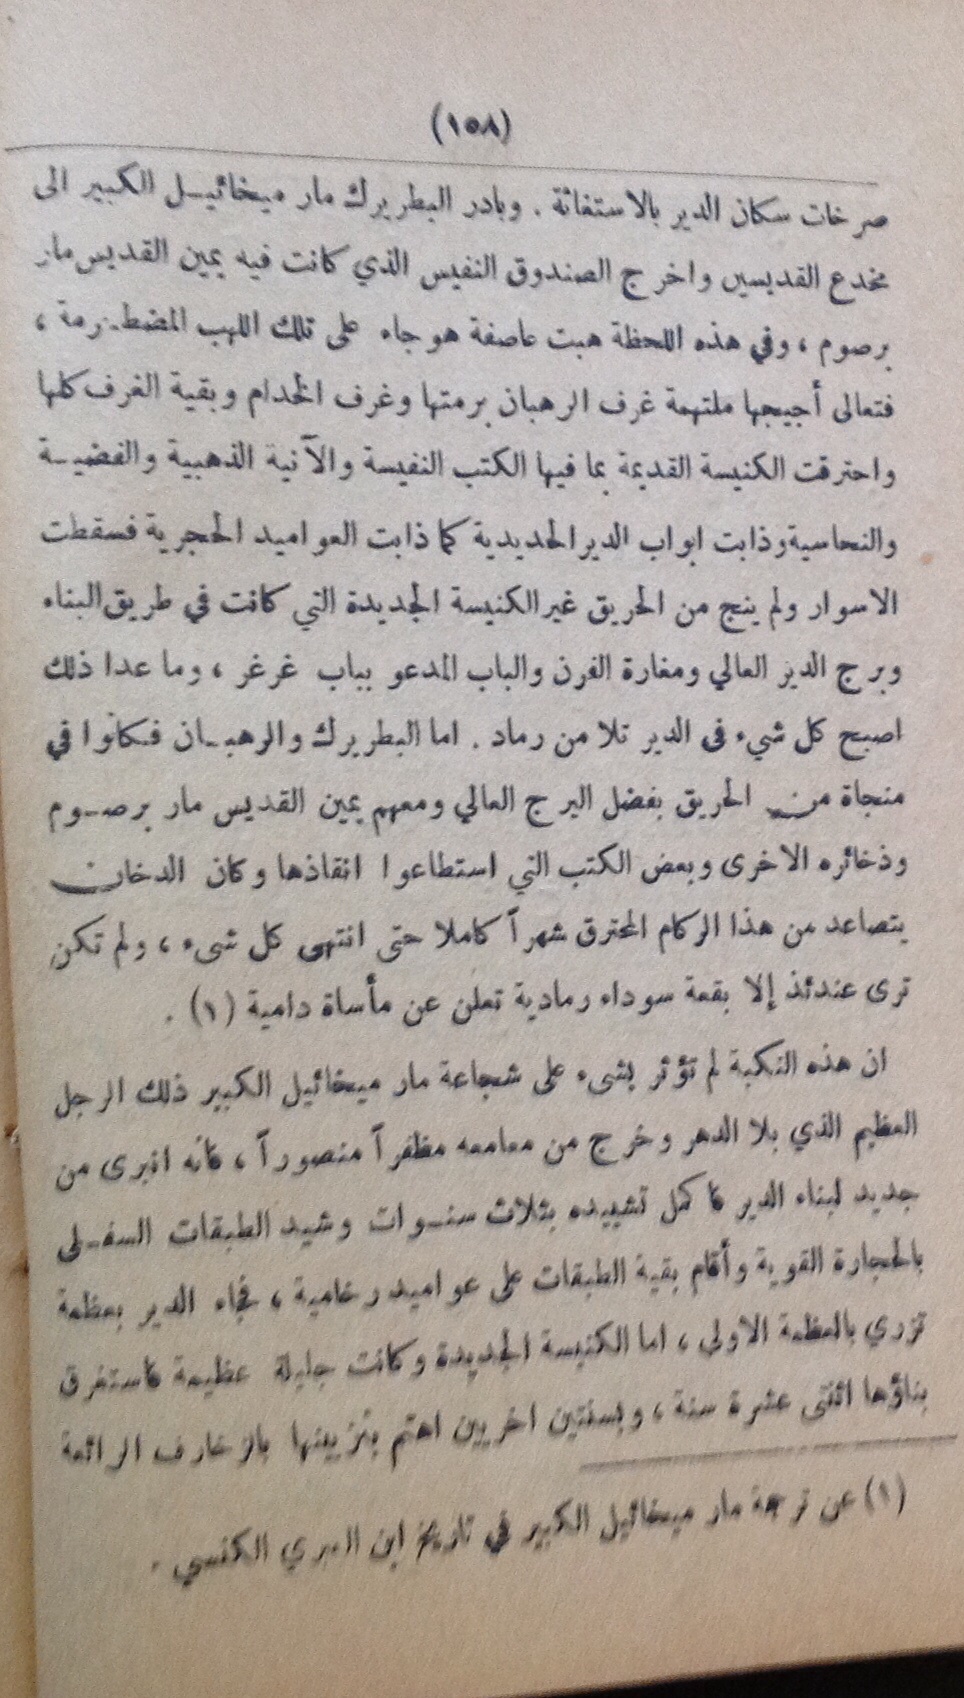 (١٥٨)
صرخات سكان الدير بالاستغاثة . وبادر البطريرك مار ميخائيل الكبير الى
مخدع القديسين واخرج الصندوق النفيس الذي كانت فيه يمين القديس مار
برصوم ، وفي هذه اللحظة هبت عاصفة هوجاء على تلك اللهب المضطرمة ،
فتعالى أجيجها ملتهمة غرف الرهبان برمتها وغرف الخدام وبقية الغرف كلها
واحترقت الكنيسة القديمة بما فيها الكتب النفيسة والآنية الذهبية والفضية
والنحاسية وذابت ابواب الدير الحديدية كما ذابت العواميد الحجرية فسقطت
الاسوار ولم ينج من الحريق غير الكنيسة الجديدة التي كانت في طريق البناء
وبرج الدير العالي ومغارة الفرن والباب المدعو بباب غرغر ، وما عدا ذلك
اصبح كل شيء فى الدير تلا من رماد . اما البطريرك والرهبان فكانوا في
منجاة من الحريق بفضل البرج العالي ومعهم يمين القديس مار برصوم
وذخائره الاخرى وبعض الكتب التي استطاعوا انقاذها وكان الدخان
يتصاعد من هذا الركام المحترق شهراً كاملا حتى انتهى كل شىء ، ولم تكن
ترى عندئذ إلا بقعة سوداء رمادية تعلن عن مأساة دامية (١) .
ان هذه النكبة لم تؤثر بشىء على شجاعة مار ميخائيل الكبير ذلك الرجل
العظيم الذي بلا الدهر وخرج من معامعه مظفراً منصوراً ، فانه انبرى من
جديد لبناء الدير فاكمل تشييده بثلاث سنوات وشيد الطبقات السفلى
بالحجارة القوية وأقام بقية الطبقات على عواميد رخامية ، فجاء الدير بعظمة
تزري بالعظمة الاولى ، اما الكنيسة الجديدة وكانت جليلة عظيمة فاستغرق
بناؤها اثنتى عشرة سنة ، وبسنتين اخريين اهتم بتزيينها بالزخارف الرائعة
(١) عن ترجمة مار ميخائيل الكبير في تاريخ ابن العبري الكنسي .